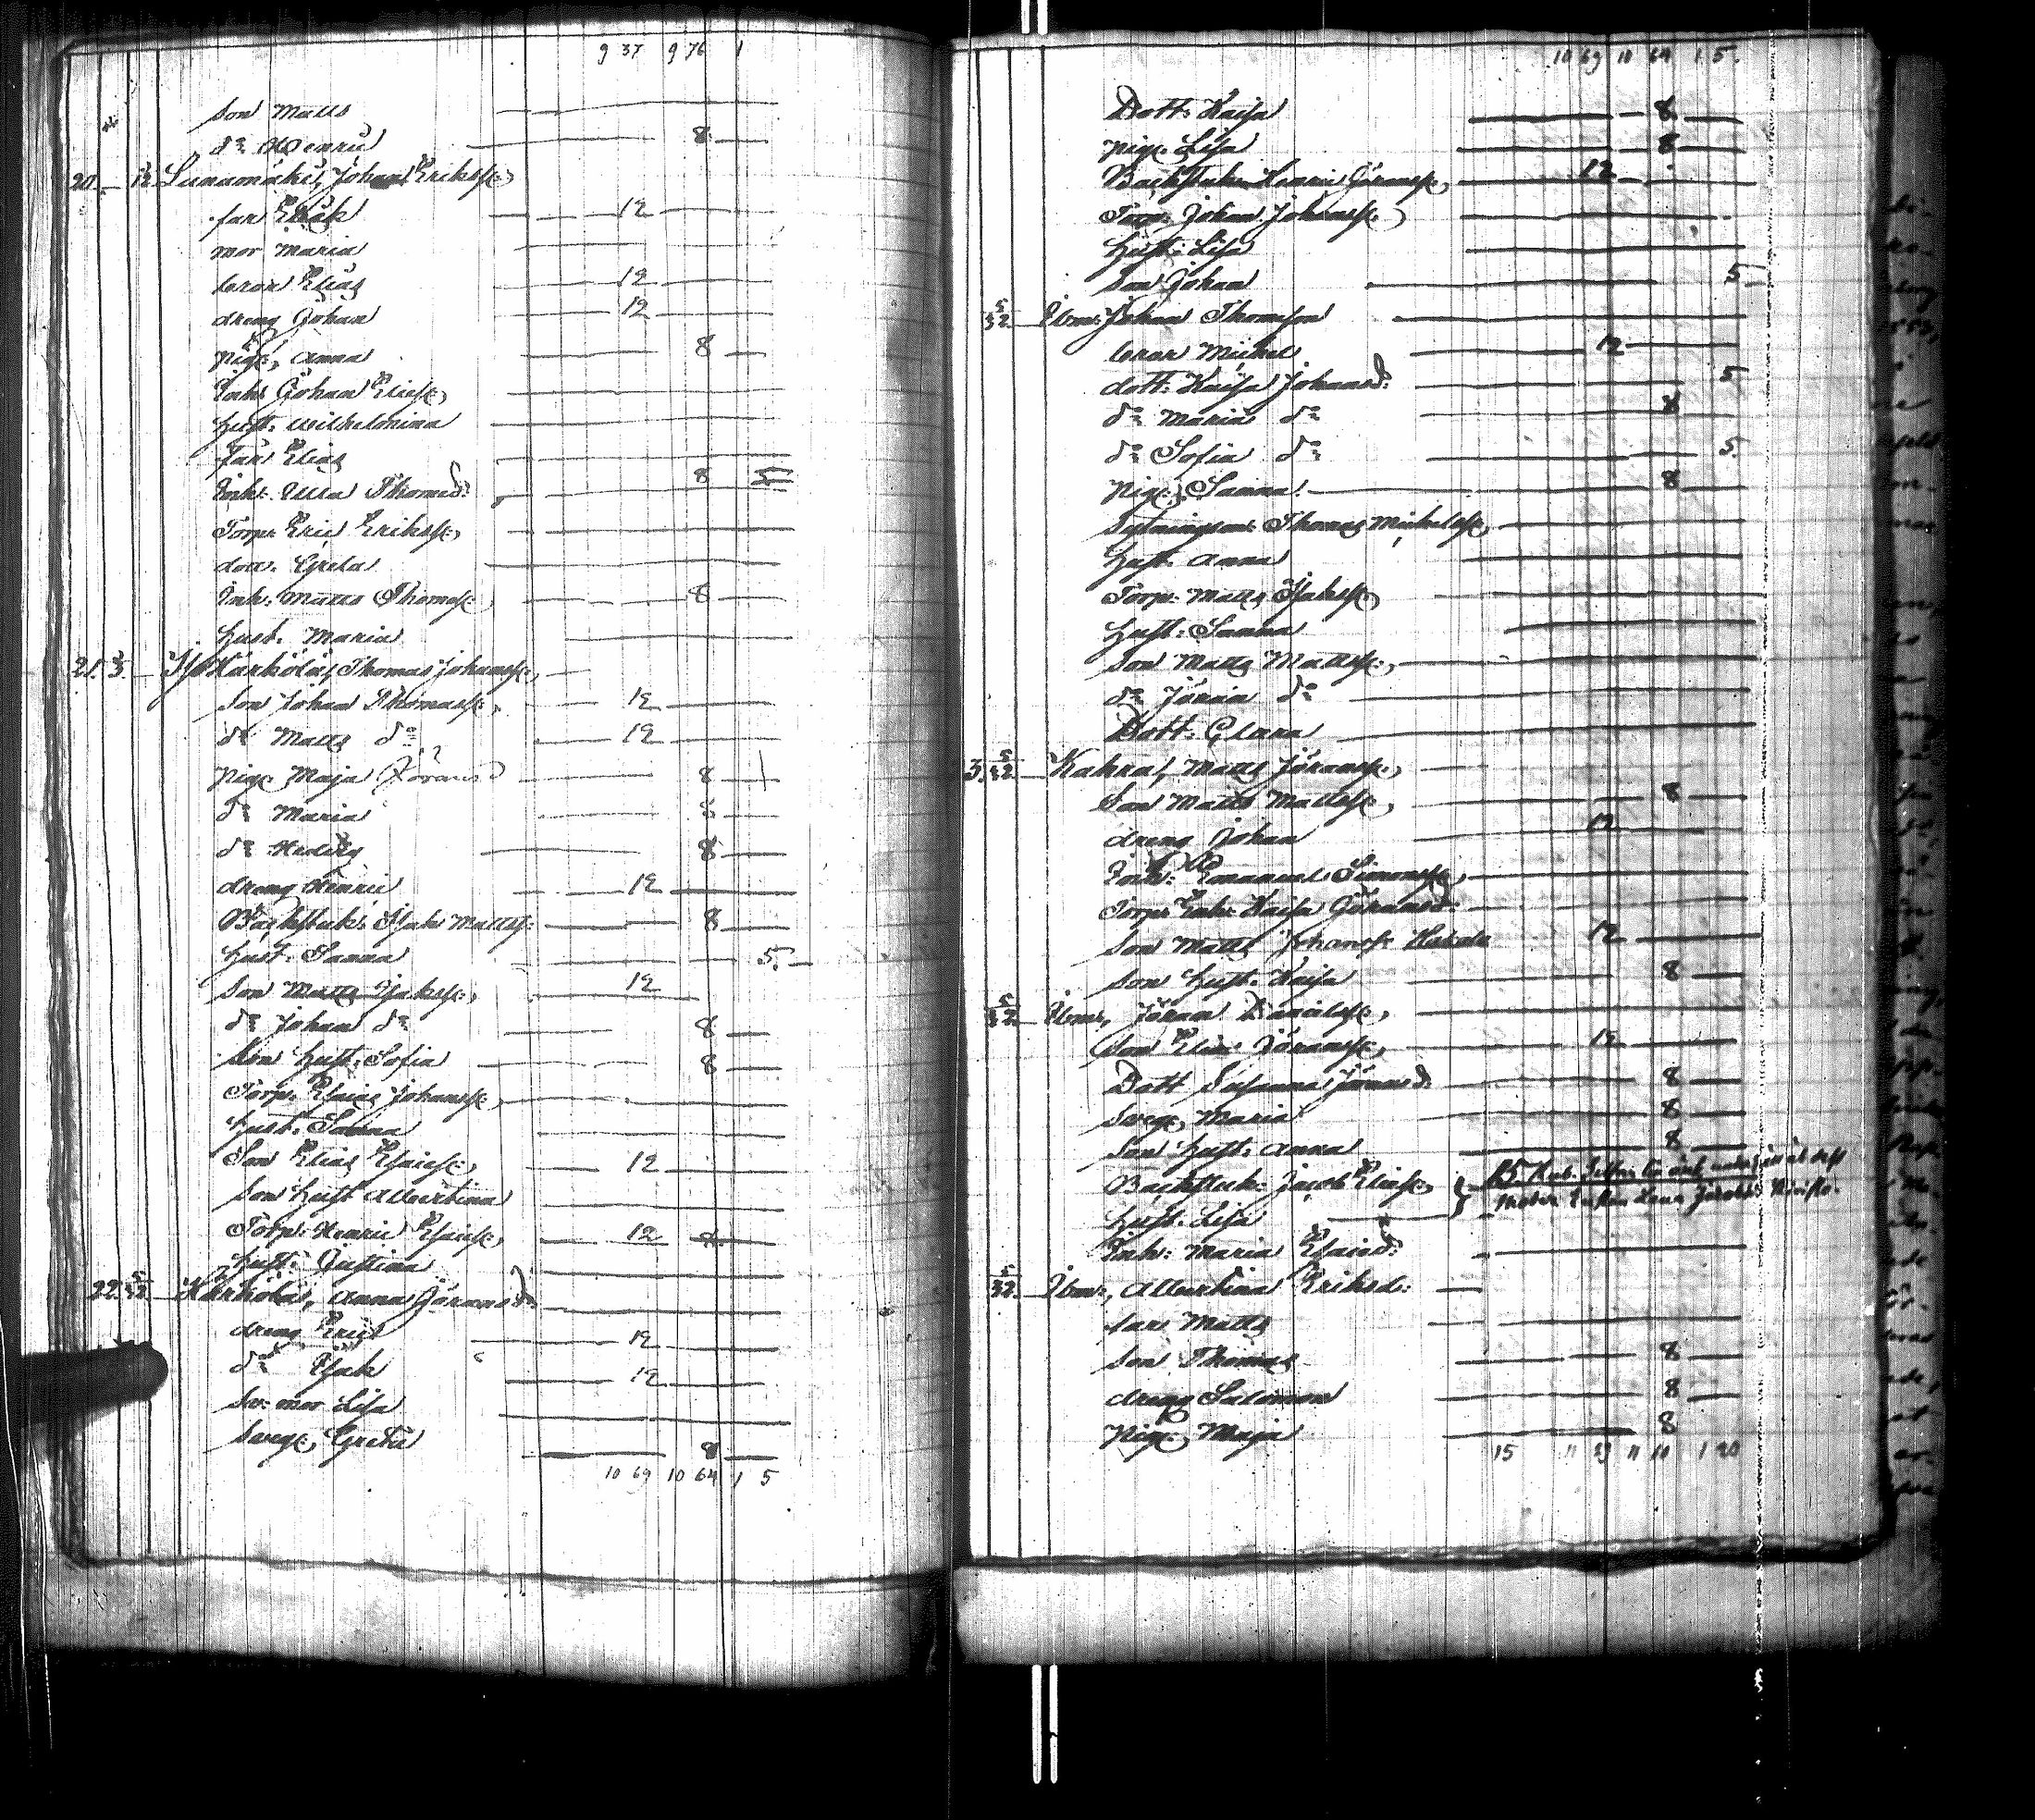 9 37 9 76 1
Son Matts
d:o Henric 8
20. 1/2 Lunamäki, Johan Erikss:
far Erik 12
mor Maria
bror Elias 12
dreng Johan 12
pige, Anna 8
Inh: Johan Eliess:
Hust. Wilhelmina
far Elias
Inh: Ulla Thomasd: 8 5
Torp: Eric Erikss:
dott. Greta
Inh: Matts Thomass: 8
Hust. Maria
21. Härkölä, Thomas Johanss:
Son Johan Thomass: 12
d:o Matts d:o 12
pige Maja Göransd 8
d:o Maria 8
d:o Hedvig 8
dreng Henric 12
Backstuk: Isak Mattss: 8
Hust. Sanna 5.
Son Matts Isakss: 12
d:o Johan d:o 8
Son Hust: Sofia 8
Torp. Esaias Johanss:
Hust. Sanna
Son Elias Esaiess: 12
Son Hust Albertina
Torp: Henric Esaiess: 12
Hust. Justina
22. 5/32 Härkölä, Anna Göransd:
dreng Eric 12
d:o Isak 12
Sv: mor Lisa
Svege, Greta 8
10 69 10 64 1 5
10 69 10 64 1 5.
Dott: Kaisa 8
pige Lisa 8
Backstuk: Henric Göranss: 12
Torp: Johan Johanss:
Hust: Lisa
Son Johan 5
5/32 Ibm: Johan Thomsson
bror Michel 12
dott: Kaisa Johansd: 5
d:o Maria d:o 8
d:o Sofia d:o 5
pige, Sanna 8
Sytningsm: Thomas Michelss:
Hust. Anna
Torp: Matts Isakss:
Hust: Sanna
Son Matts Mattss:
d:o Göran d:o
Dott: Clara
3. 5/32 Kahra, Matts Göranss:
Son Matts Mattss: 8
dreng Johan 12
Inh: Emanuel Simonss:
Torp: Enk: Kaisa Göransd:
Son Matts Johanss 12
Son Hust. Kaisa 8
5/32 Ibm:, Göran Danielss:
Son Elias Göranss: 12
Dott Susanna Göransd: 8
Svege, Maria 8
Son Hust: Anna 8
Backstuk: Jacob Eliess:
Hust. Lisa
Inh: Maria Esaiesd:
5/32 Ibm:, Albertina Eriksd:
far Matts
Son Thomas 8
dreng Salomon 8
pige, Maja 8
15 11 29 11 11 1 20